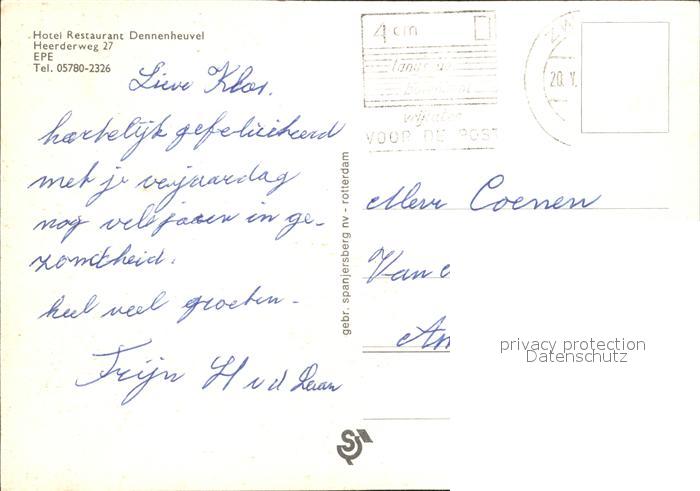 Hotel Restaurant Dennenheuvel
Heerderweg 27
EPE
Tel. 05780-2326
Lieve Klas,
hartelijk gefeliciteerd
met je verjaardag
nog vele jaren in ge-
zondheid.
heel veel groeten -
Trijn H v d Laan
gebr. spanjersberg nv - rotterdam
4 cm
langs de
bovenkant
vrijlaten
VOOR DE POST
20. V.
Mevr Coenen
Van
Am
privacy protection
Datenschutz